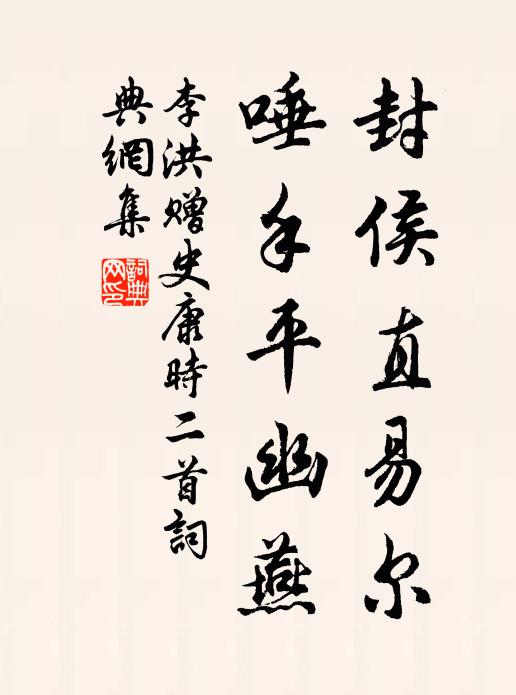 封侯直易尔
唾手平幽燕
李洪赠史康時二首詞
典網集
詞典
网印